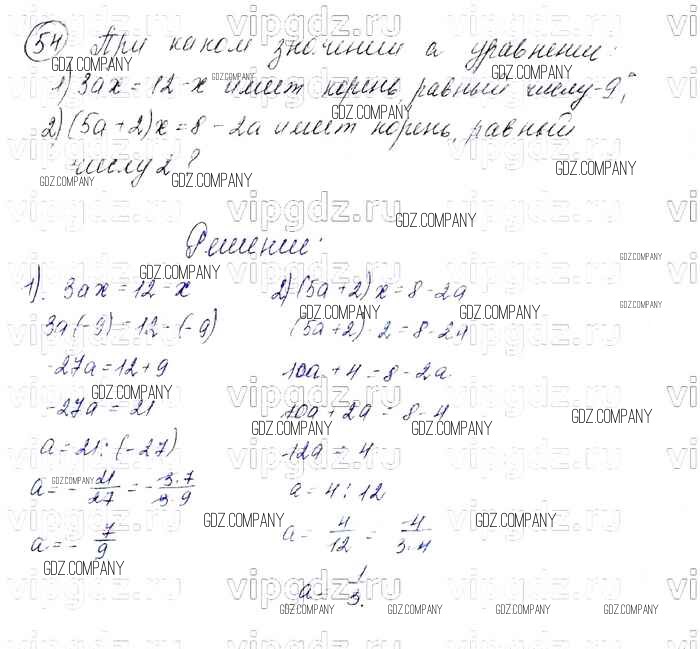 54 При каком значении а уравнение:
1) 3ах = 12 - х имеет корень, равный числу -9;
2) (5а + 2)х = 8 - 2а имеет корень, равный
числу 2?
Решение:
1). 3ах = 12 - х
3а(-9) = 12 - (-9)
-27а = 12 + 9
-27а = 21
а = 21 : (-27)
а = - 21/27 = - 3·7/3·9
а = - 7/9
2) (5а + 2)х = 8 - 2а
(5а + 2) · 2 = 8 - 2а
10а + 4 = 8 - 2а
10а + 2а = 8 - 4
12а = 4
а = 4 : 12
а = 4/12 = 4/3·4
а = 1/3.
vipgdz.ru
GDZ.COMPANY